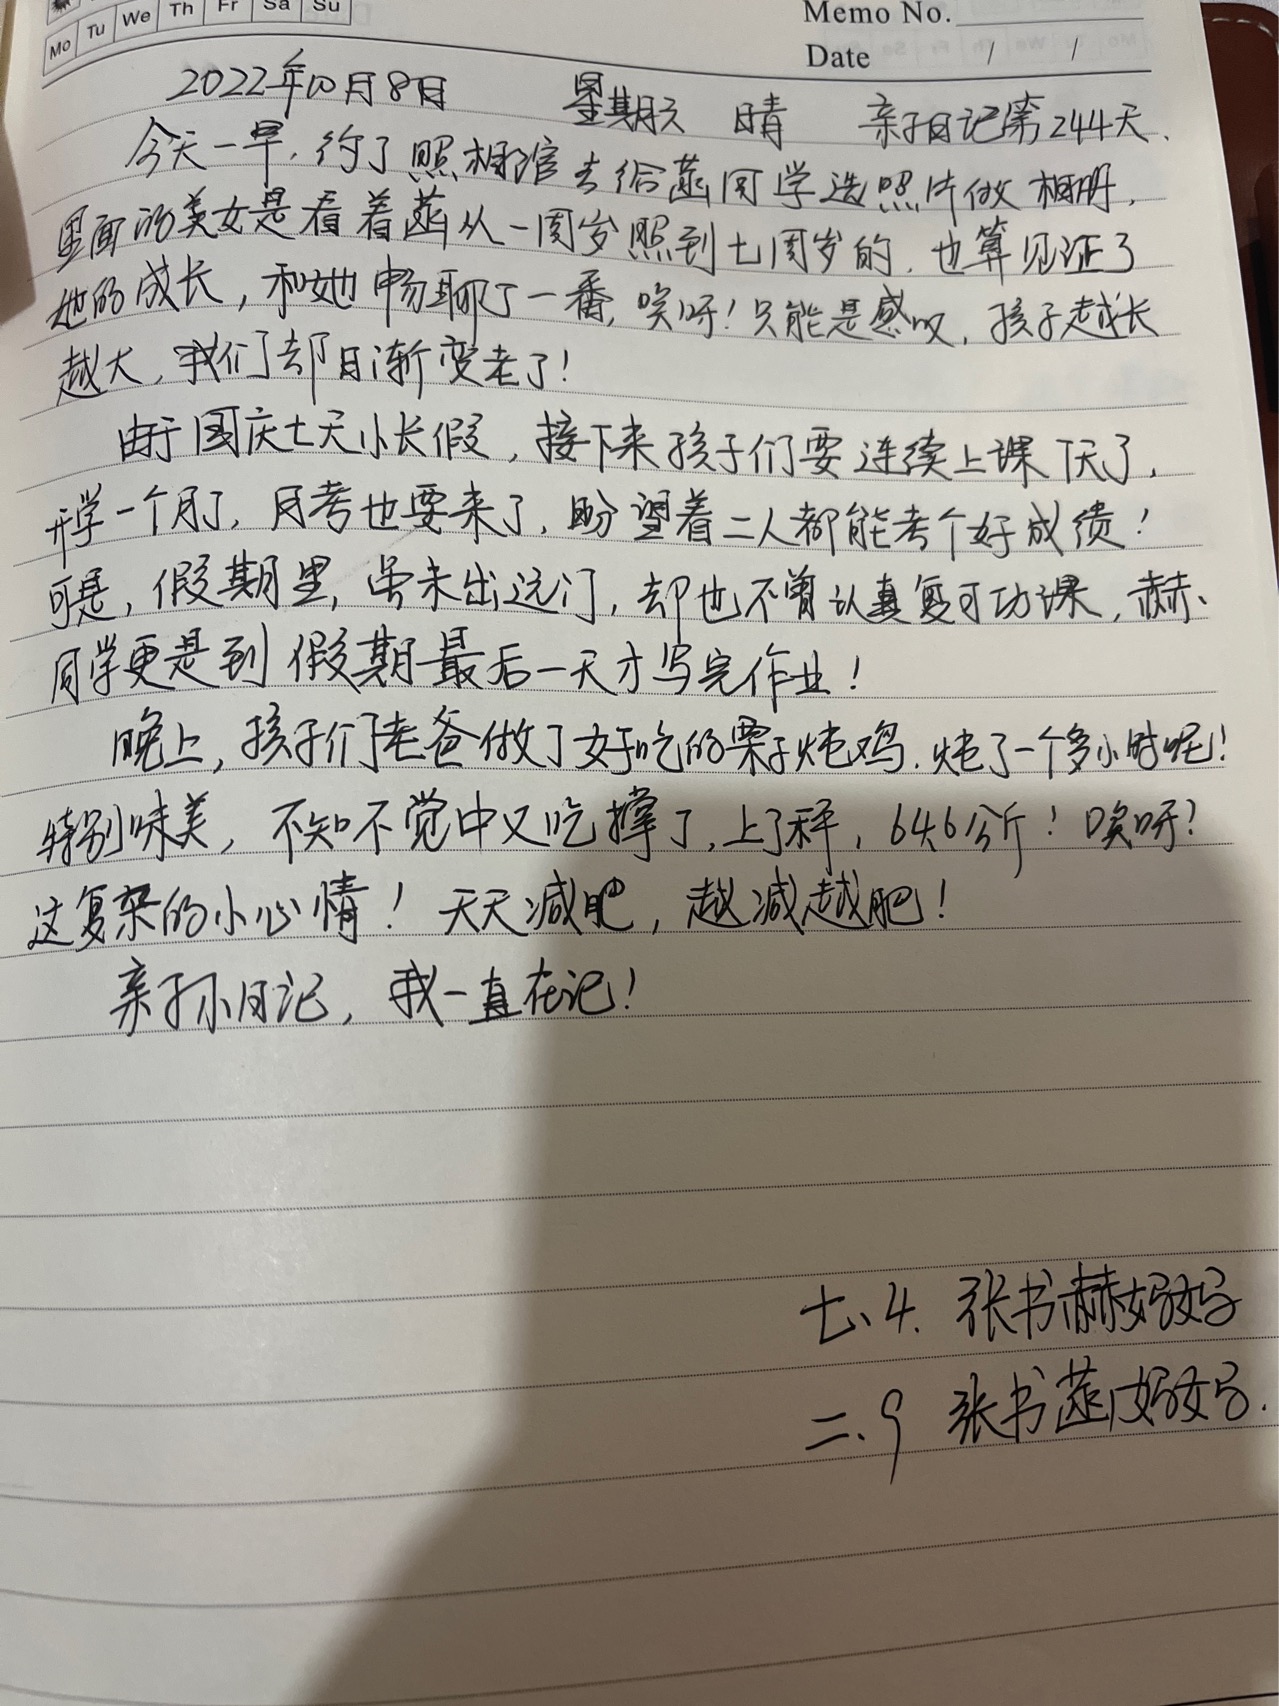 Mo Tu We Th Fr Sa Su
Memo No.
Date / /
2022年10月8日 星期六 晴 亲子日记第244天.
今天一早,约了照相馆去给菡同学选照片做相册,
里面的美女是看着菡从一周岁照到七周岁的,也算见证了
她的成长,和她畅聊了一番,唉呀!只能是感叹,孩子越长
越大,我们却日渐变老了!
由于国庆七天小长假,接下来孩子们要连续上课7天了,
开学一个月了,月考也要来了,盼望着二人都能考个好成绩!
可是,假期里,虽未出远门,却也不曾认真复习功课,赫
同学更是到假期最后一天才写完作业!
晚上,孩子们老爸做了好吃的栗子炖鸡,炖了一个多小时呢!
特别味美,不知不觉中又吃撑了,上了秤,64.6公斤!唉呀?
这复杂的小心情!天天减肥,越减越肥!
亲子小日记,我一直在记!
七、4. 张书赫妈妈
二、9 张书菡妈妈.